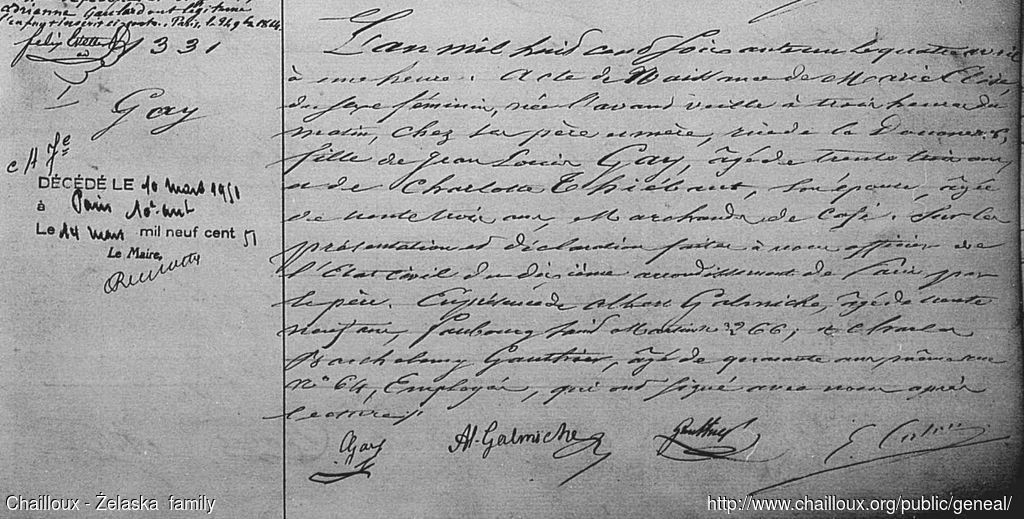 Adrianne Gaulard ont légitimé
l'enfant inscrit ci-contre. Paris, le 24 9bre 1864.
331
Gay
DÉCÉDÉ LE 10 mars 1951
à Paris 10e arrt
Le 14 mars mil neuf cent 51
Le Maire,
L'an mil huit cent soixante un le quatre avril
à une heure. Acte de Naissance de Marie
du sexe féminin, née l'avant veille à trois heures du
matin, chez ses père et mère, rue de la Douane 8,
fille de Jean Louis Gay, âgé de trente trois ans,
et de Charlotte Thiébaut, son épouse, âgée
de trente trois ans, Marchands de café. Sur la
présentation et déclaration faites à nous officier de
l'État civil du dixième arrondissement de Paris par
le père. En présence de Albert Galmiche, âgé de trente
neuf ans, faubourg Saint Martin 266, et Charles
Barthelemy Gauthier, âgé de quarante ans, même rue
No 64, Employés, qui ont signé avec nous après
lecture.
Gay
Al. Galmiche
Gauthier
Chailloux - Żelaska family
http://www.chailloux.org/public/geneal/